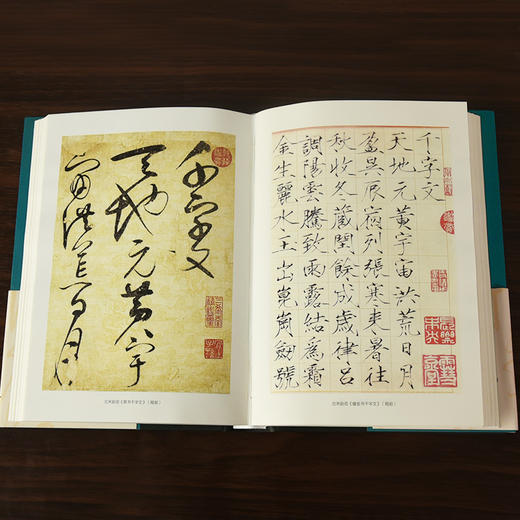 千字文
天地元黃宇
宙洪荒日月
北宋赵佶《草书千字文》（局部）
千字文
天地元黃宇宙洪荒日月
盈昃辰宿列張寒来暑往
秋收冬藏閏餘成歲律呂
調陽雲騰致雨露結爲霜
金生麗水玉出崑崗劍號
北宋赵佶《瘦金书千字文》（局部）